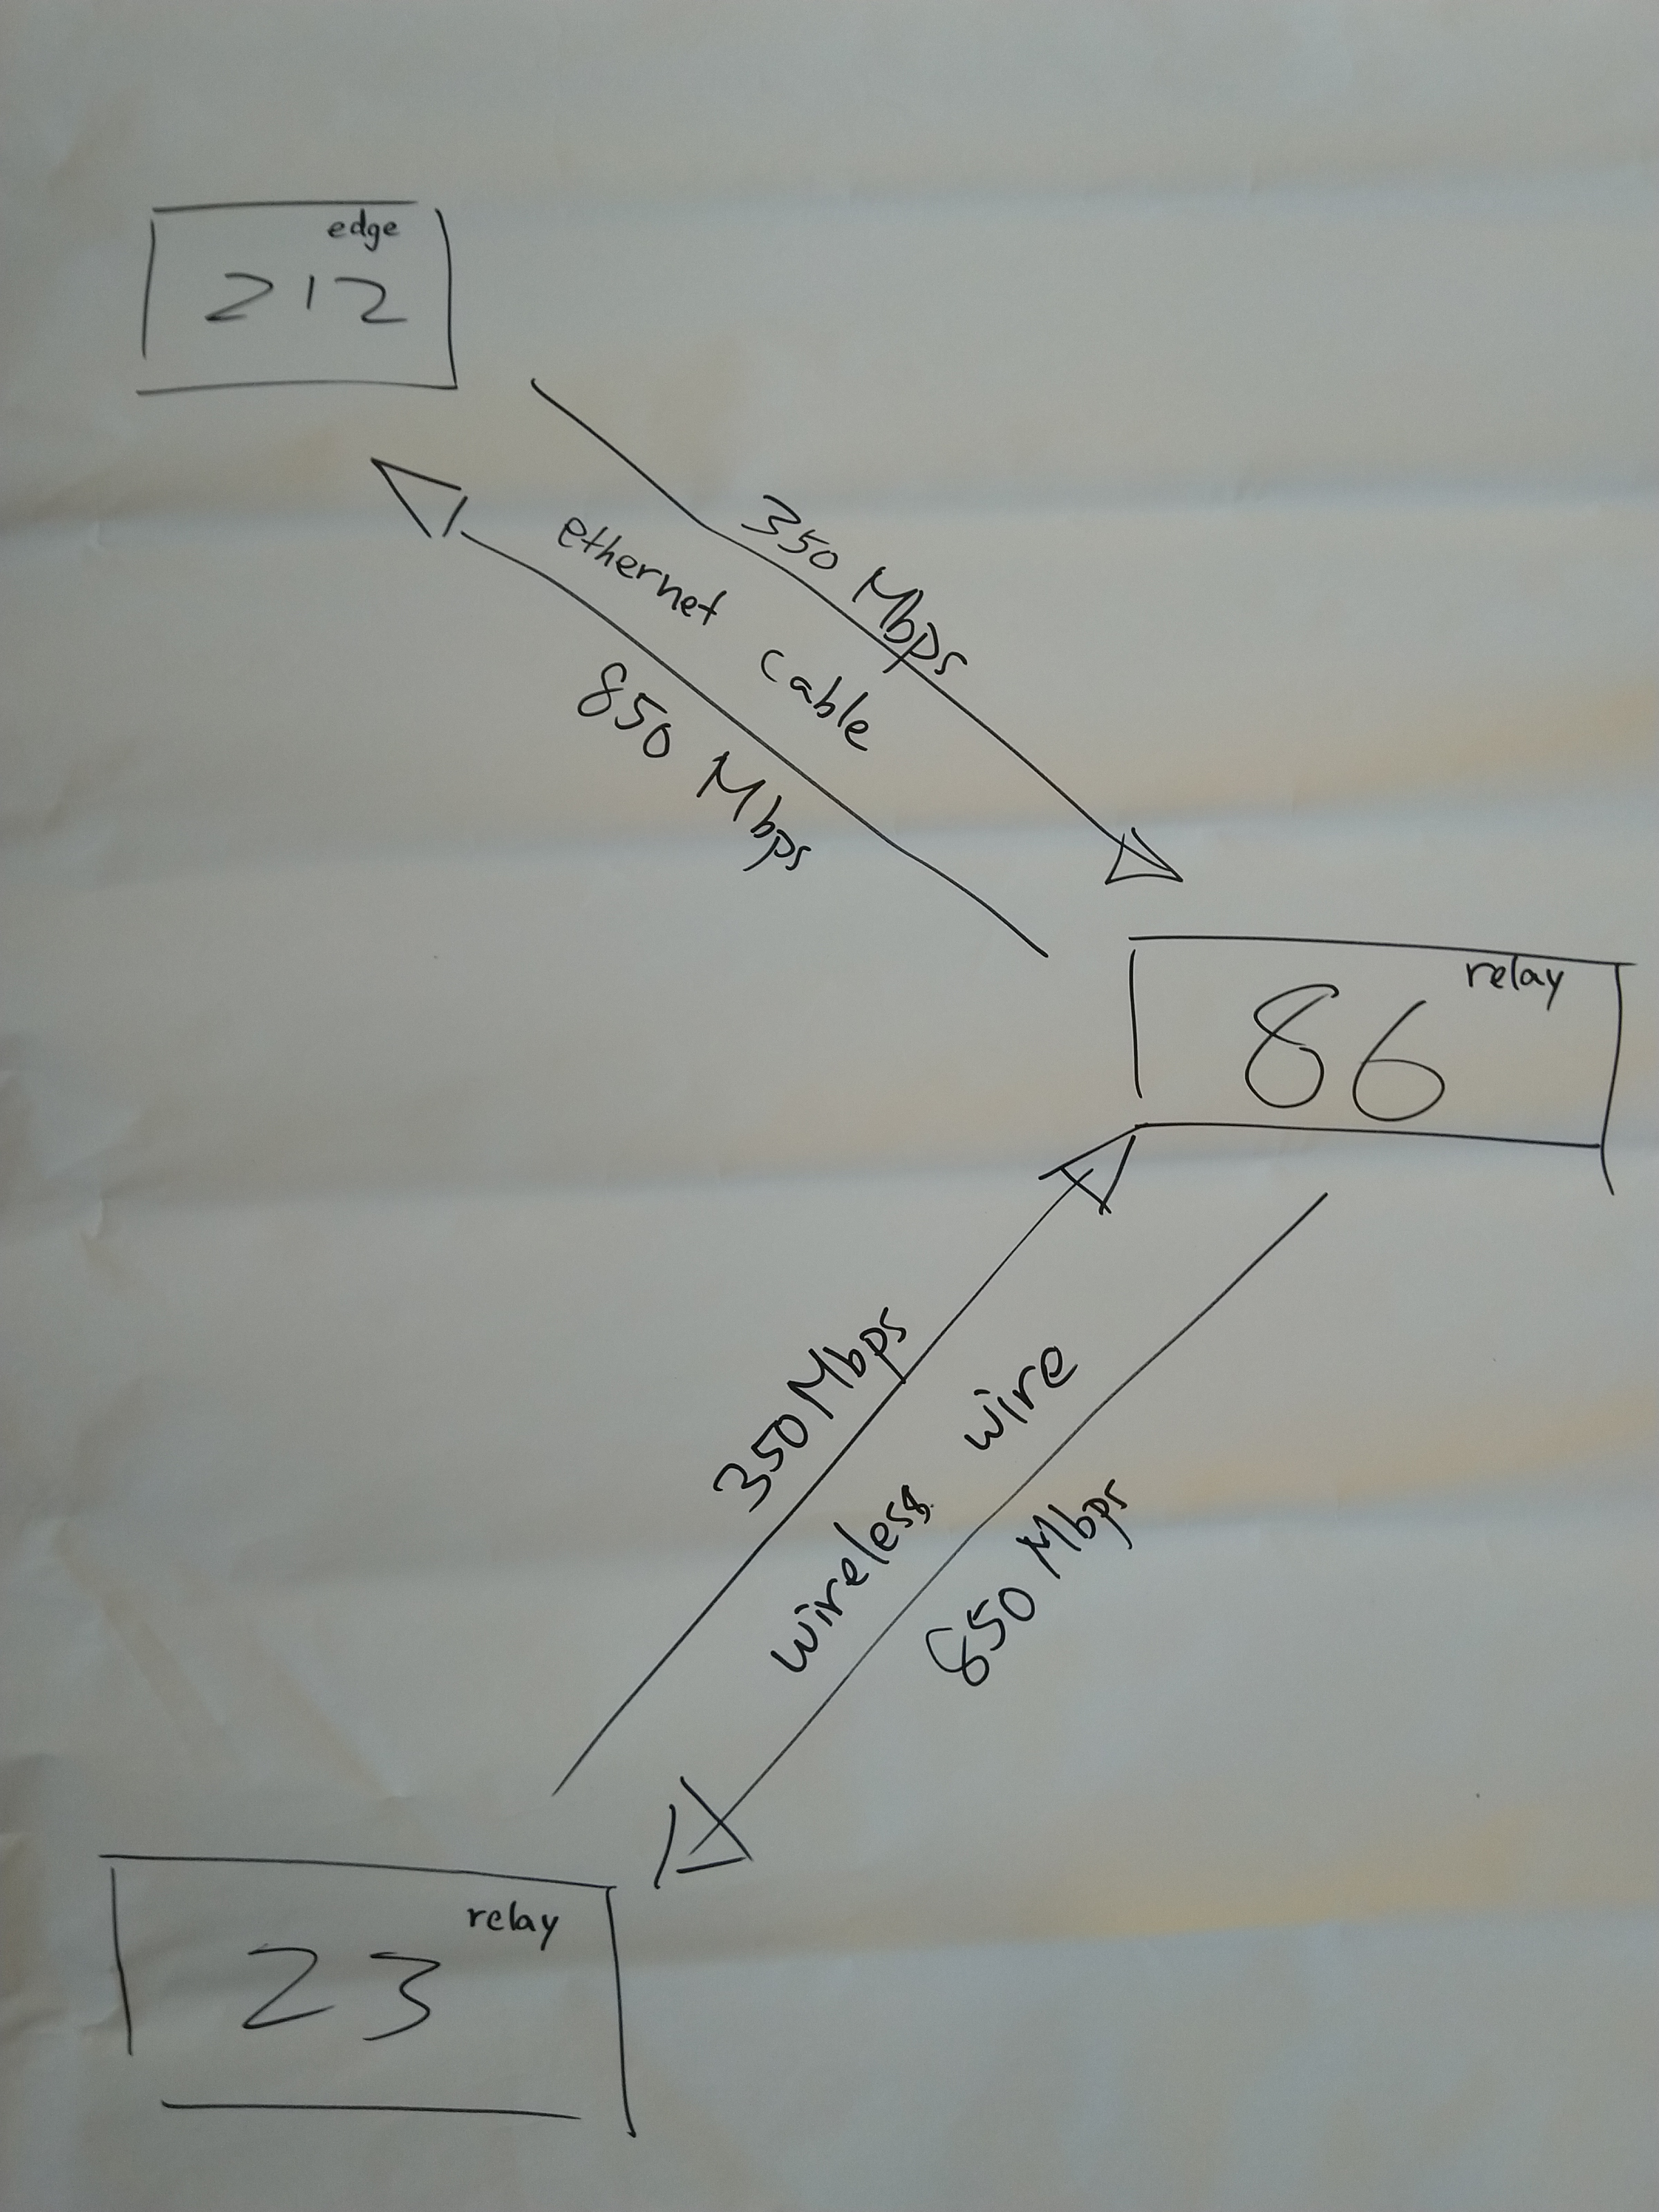 edge
212
350 Mbps
ethernet cable
850 Mbps
relay
86
350 Mbps
wireless wire
850 Mbps
relay
23